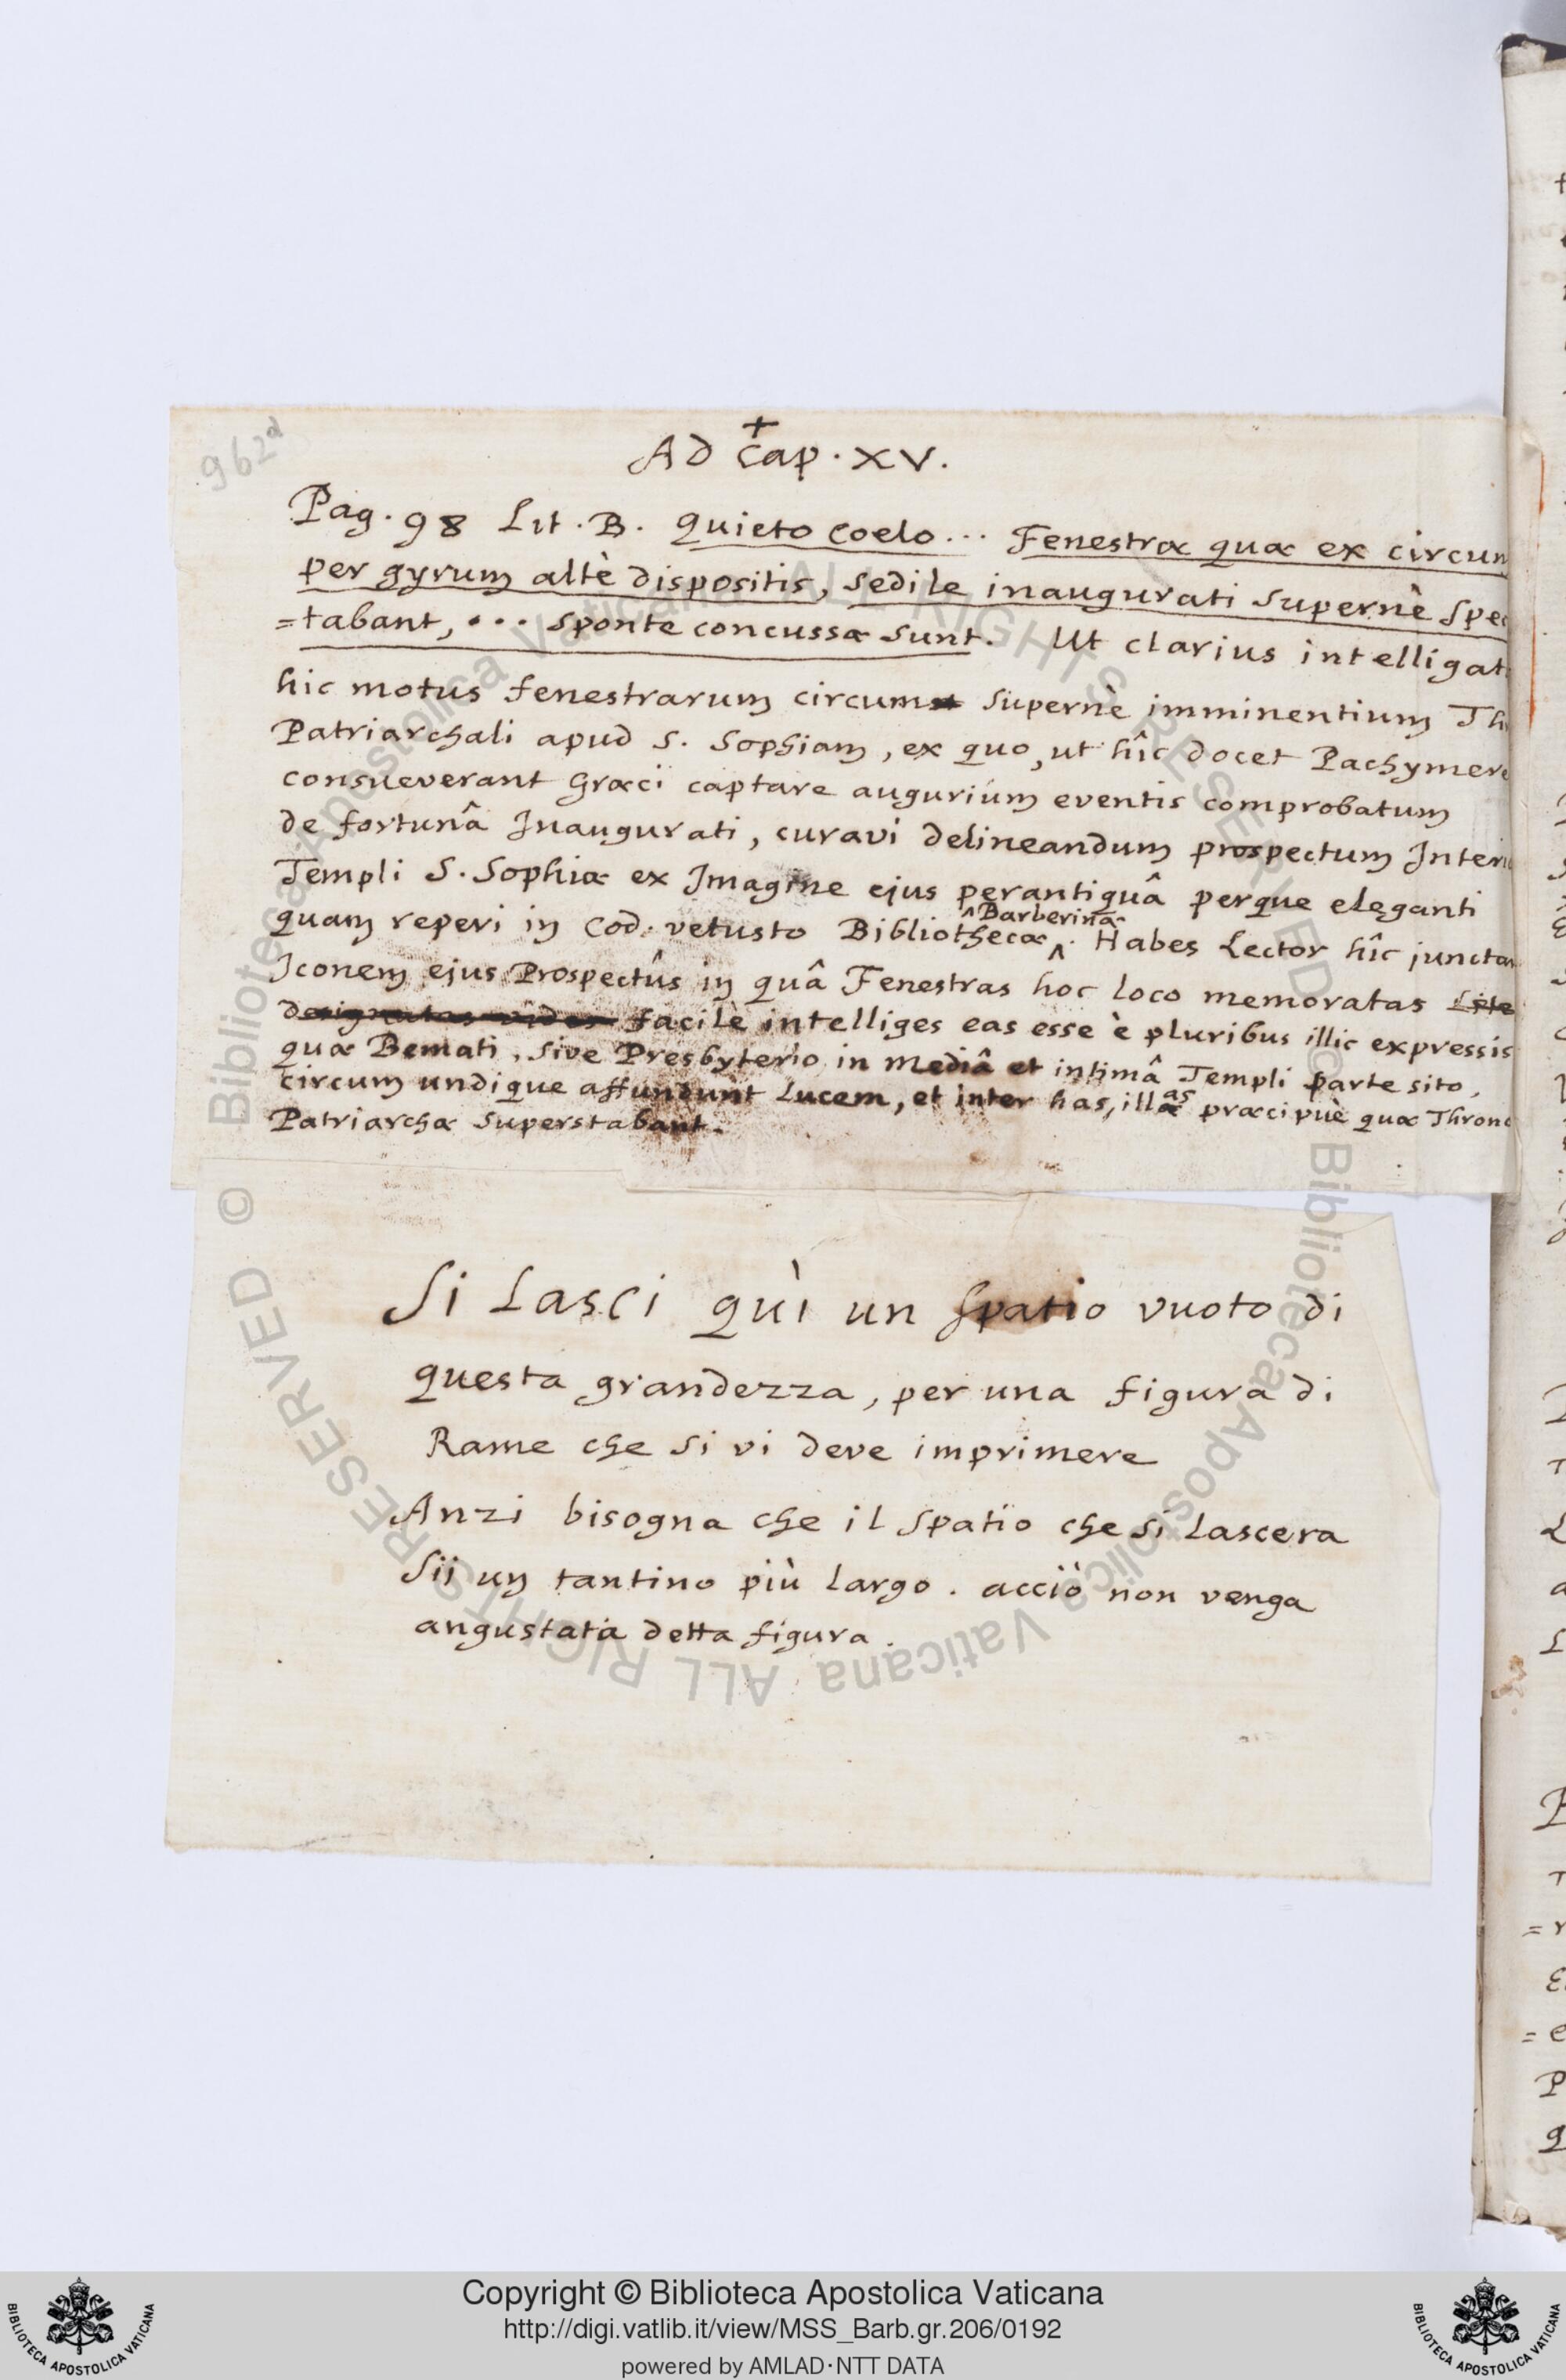 962d
+
Ad Cap. XV.
Pag. 98 Lit. B. Quieto Coelo... Fenestræ quæ ex circum
per gyrum altè dispositis, sedile inaugurati supernè spec
=tabant, ... sponte concussæ sunt. Ut clarius intelligat
hic motus fenestrarum circum supernè imminentium Th
Patriarchali apud S. Sophiam, ex quo, ut hîc docet Pachymere
consueverant Græci captare augurium eventis comprobatum
de fortunâ Inaugurati, curavi delineandum prospectum Interi
Templi S. Sophiæ ex Imagine ejus perantiquâ perque eleganti
quam reperi in Cod. vetusto Bibliothecæ ^Barberinæ. Habes Lector hîc junctam
Iconem ejus Prospectûs in quâ Fenestras hoc loco memoratas Lite
designatas vides facilè intelliges eas esse è pluribus illic expressis
quæ Bemati, sive Presbyterio in mediâ et intimâ Templi parte sito,
circum undique affundunt Lucem, et inter has, illas præcipuè quæ Throno
Patriarchæ superstabant.
Si Lasci quì un spatio vuoto di
questa grandezza, per una figura di
Rame che si vi deve imprimere
Anzi bisogna che il spatio che si Lascera
sii un tantino più largo. acciò non venga
angustata detta figura.
Copyright © Biblioteca Apostolica Vaticana
http://digi.vatlib.it/view/MSS_Barb.gr.206/0192
powered by AMLAD·NTT DATA
BIBLIOTECA APOSTOLICA VATICANA
BIBLIOTECA APOSTOLICA VATICANA
© Biblioteca Apostolica Vaticana ALL RIGHTS RESERVED © Biblioteca Apostolica Vaticana ALL RIGHTS RESERVED